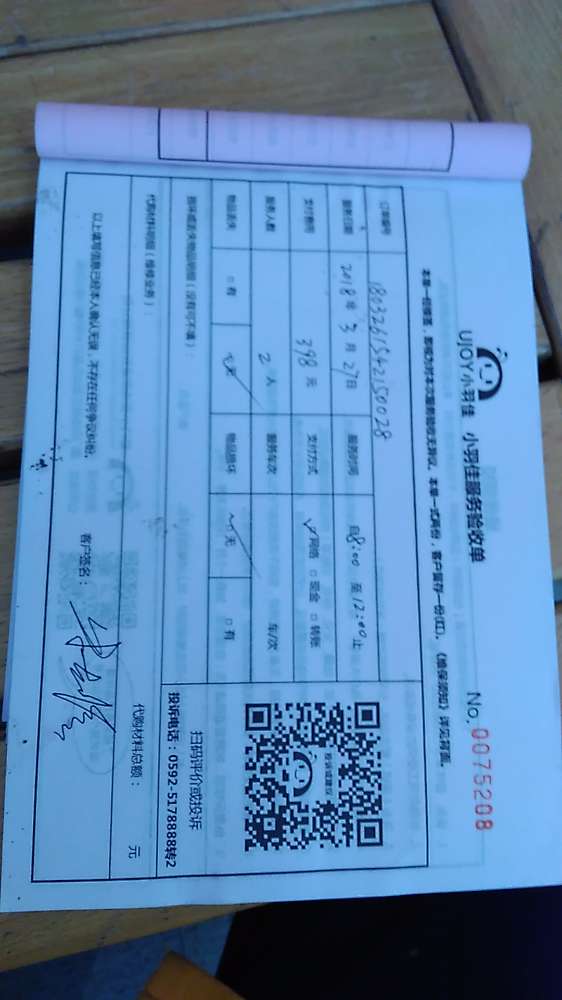 UJOY小羽佳 小羽佳服务验收单 No. 0075208
本单一经签署，即视为对本次服务验收无异议。本单一式两份，客户留存一份(红)。《维保须知》详见背面。
订单编号 1803261542150028
服务日期 2018年3月27日 服务时间 自8:00 至12:00止
支付费用 398元 支付方式 ✓网络 □现金 □转账
服务人数 2人 服务车次 车/次
物品丢失 □有 ✓无 物品损坏 ✓无 □有
损坏或丢失物品明细（没有可不填）：
代购材料明细（维修业务）：
代购材料总额： 元
以上填写信息已经本人确认无误，不存在任何争议纠纷。 客户签名：
投诉或建议
扫码评价或投诉
投诉电话：0592-5178888转2